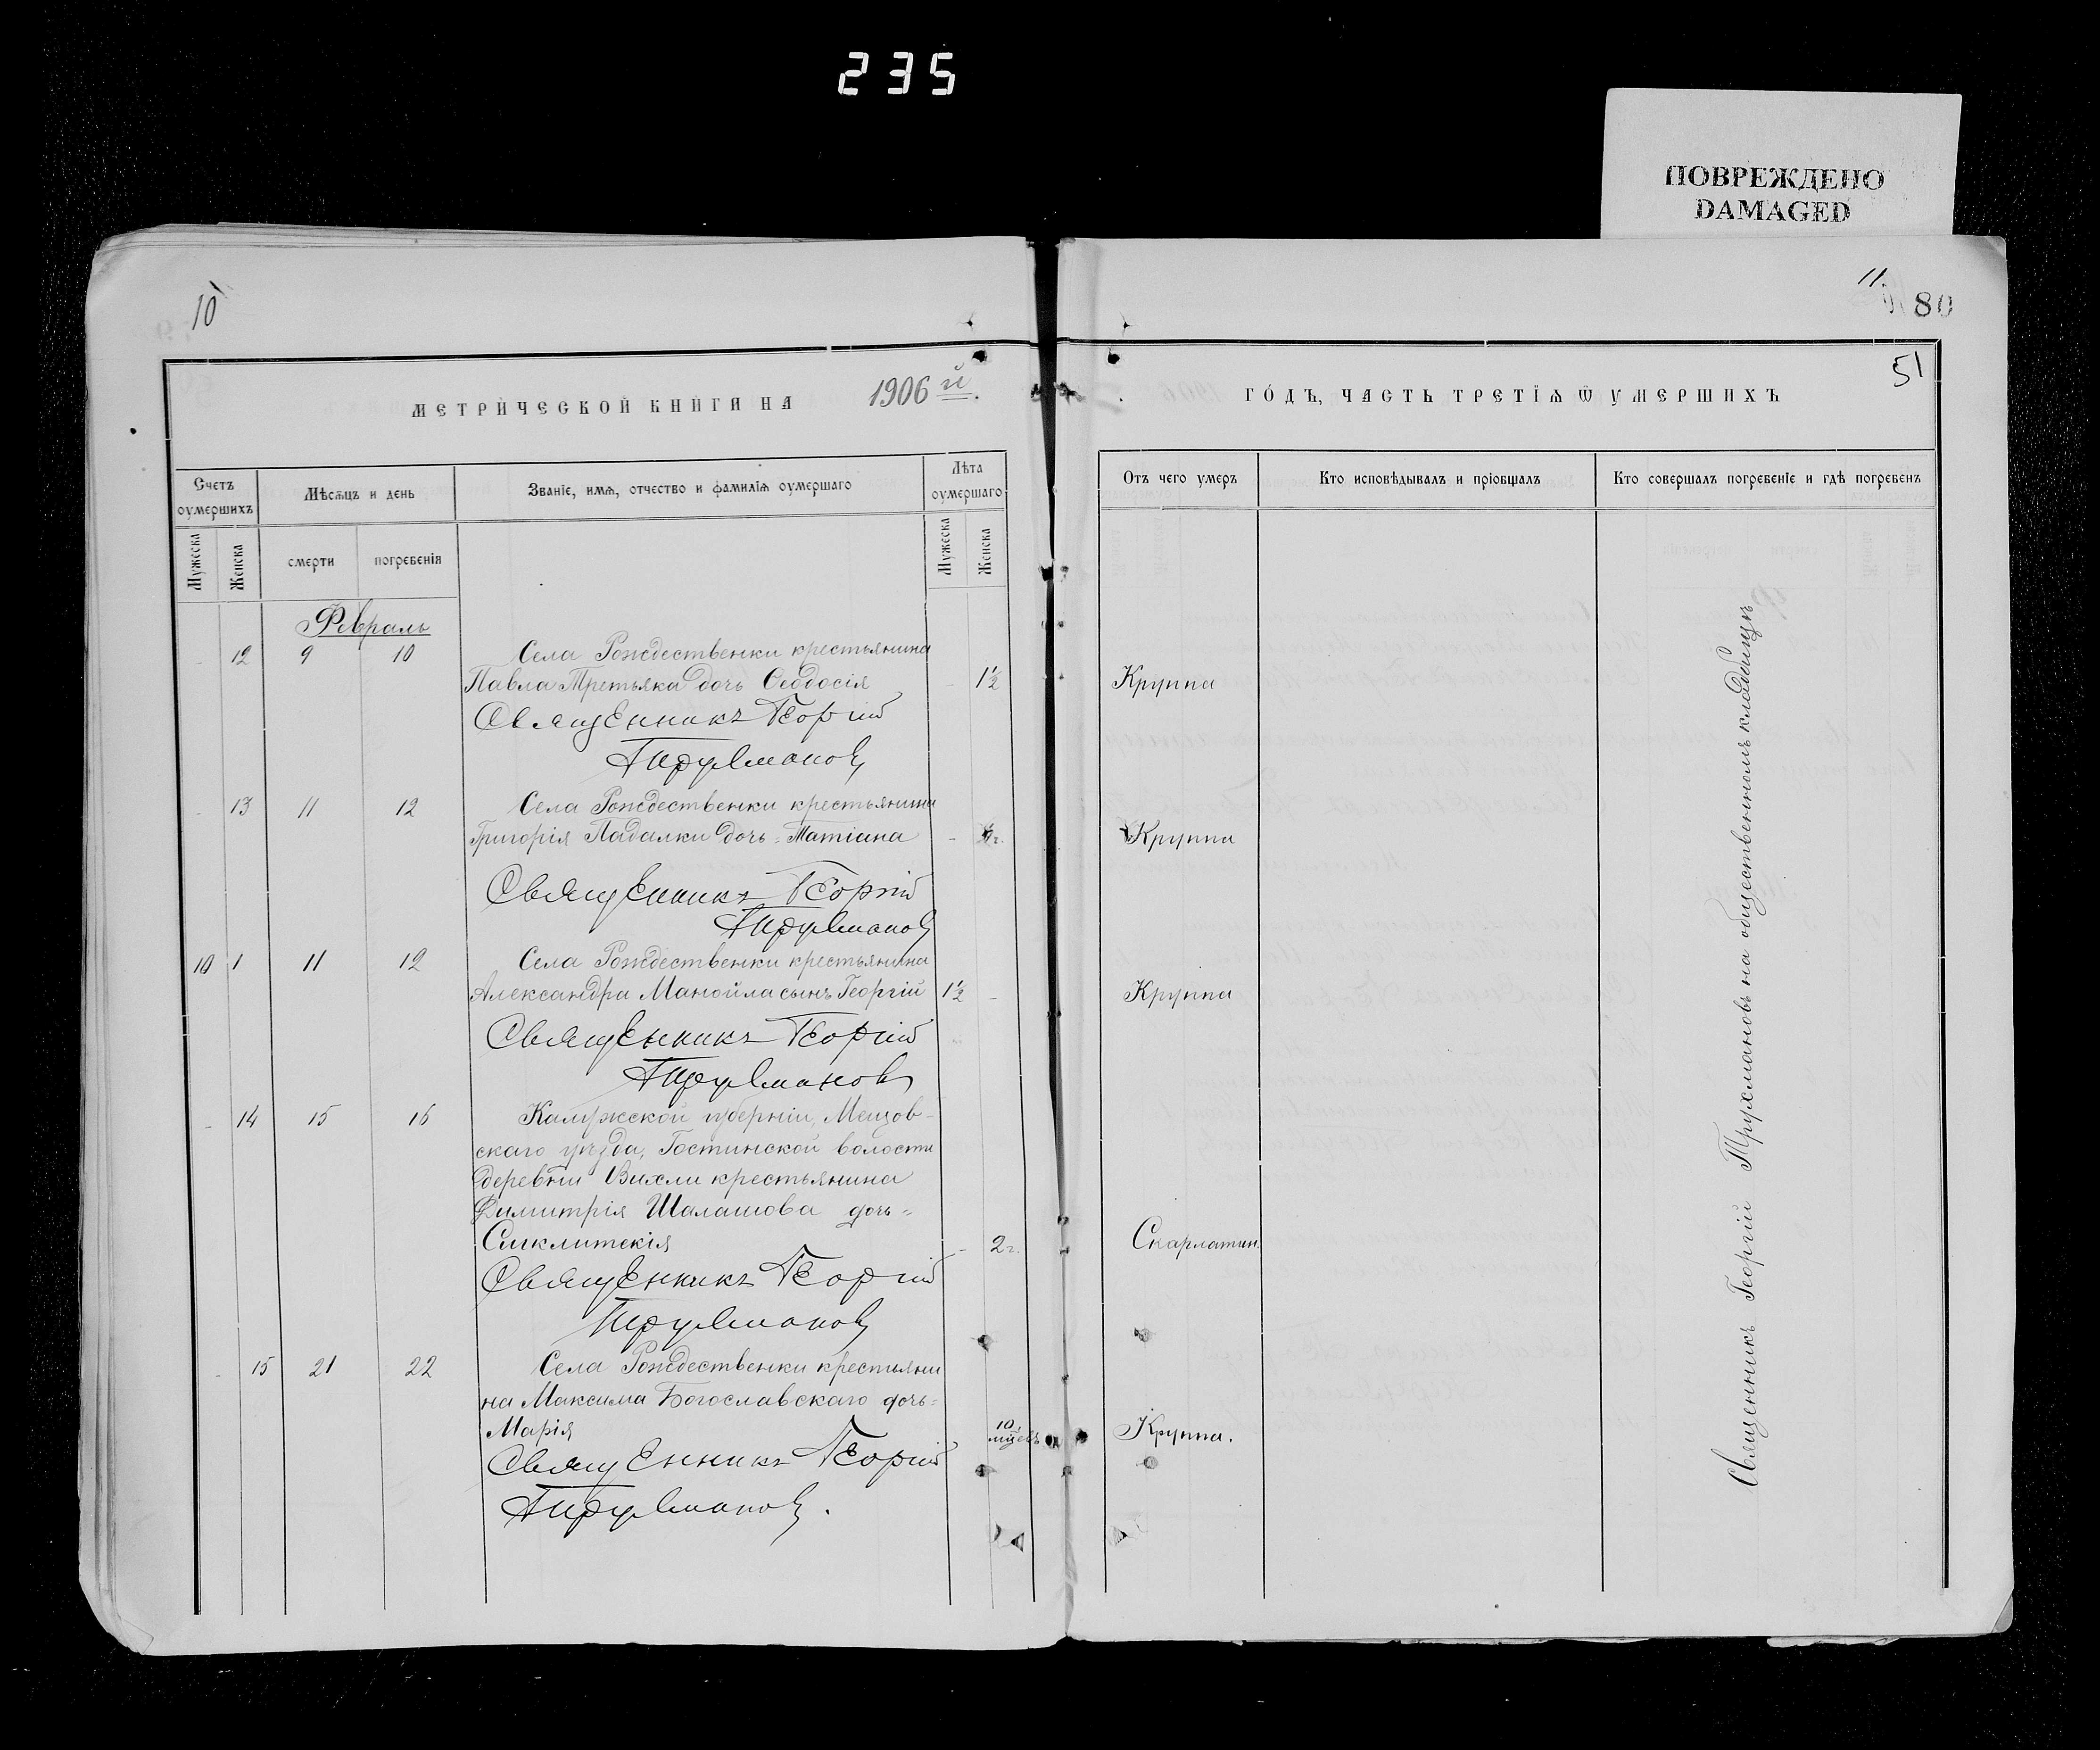 235
ПОВРЕЖДЕНО
DAMAGED
10
11
80
51
МЕТРИЧЕСКОЙ КНИГИ НА 1906й.
ГОДЪ, ЧАСТЬ ТРЕТІѦ Ѿ УМЕРШИХЪ
Счетъ оумершихъ
Мѣсѧцъ и день
Званіе, имѧ, отчество и фамиліѧ оумершаго
Лѣта оумершаго
Отъ чего умеръ
Кто исповѣдывалъ и пріобщалъ
Кто совершалъ погребеніе и гдѣ погребенъ
Мужеска
Женска
смерти
погребенія
Мужеска
Женска
Февраль
- 12 9 10 Села Рождественки крестьянина
Павла Третьяка дочь Ѳеодосія - 1½ Круппа
Священникъ Георгій
Трухмановъ
- 13 11 12 Села Рождественки крестьянина
Григорія Падалки дочь = Татіана - Круппа
Священникъ Георгій
Трухмановъ
10 1 11 12 Села Рождественки крестьянина
Александра Манойла сынъ Георгій 1½ - Круппа
Священникъ Георгій
Трухмановъ
- 14 15 16 Калужской губерніи, Мещов-
скаго уѣзда, Гостинской волости
деревни Вихли крестьянина
Димитрія Шалашова дочь =
Синклитикія - 2 г. Скарлатин.
Священникъ Георгій
Трухмановъ
- 15 21 22 Села Рождественки крестьяни
на Максима Богославскаго дочь =
Марія 10 мѣцевъ Круппа.
Священникъ Георгій
Трухмановъ.
Священникъ Георгій Трухмановъ на общественномъ кладбищѣ